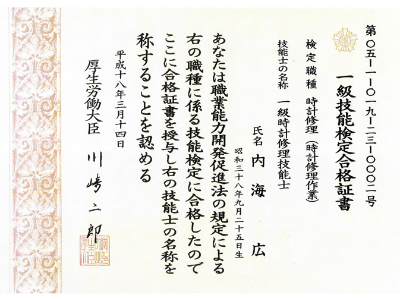 第〇五―一―〇一九―二三―〇〇〇二号
一級技能検定合格証書
検定職種 時計修理(時計修理作業)
技能士の名称 一級時計修理技能士
氏名 内海 広
昭和三十八年九月二十五日生
あなたは職業能力開発促進法の規定による
右の職種に係る技能検定に合格したので
ここに合格証書を授与し右の技能士の名称を
称することを認める
平成十八年三月十四日
厚生労働大臣 川崎二郎